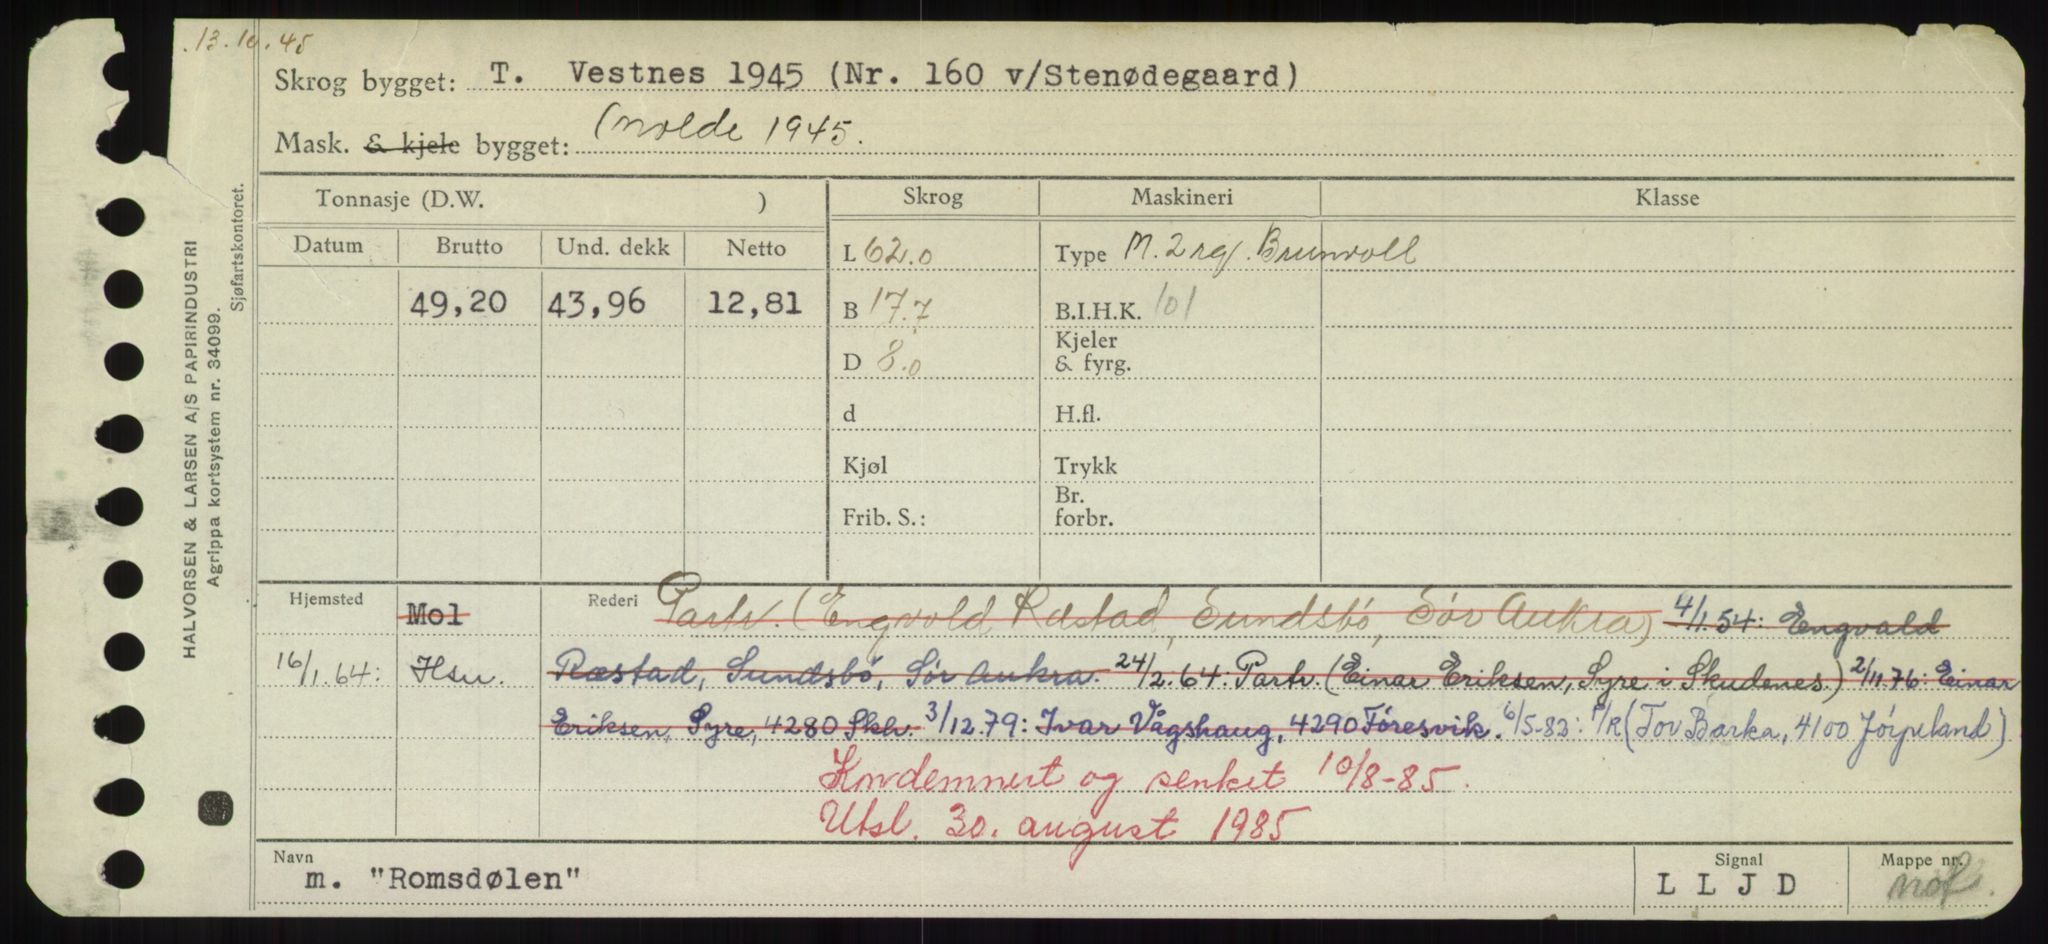 13.10.45
Skrog bygget: T. Vestnes 1945 (Nr. 160 v/Stenødegaard)
Mask. & kjele bygget: Molde 1945.
HALVORSEN & LARSEN A/S PAPIRINDUSTRI
Agrippa kortsystem nr. 34099.
Sjøfartskontoret.
Tonnasje (D.W. ) Skrog Maskineri Klasse
Datum Brutto Und. dekk Netto L 62.0 Type M. 2 rg. Brunvoll
49,20 43,96 12,81 B 17.7 B.I.H.K. 101
D 8.0 Kjeler
& fyrg.
d H.fl.
Kjøl Trykk
Frib. S.: Br.
forbr.
Hjemsted Mol Rederi Partr. (Engvald Ræstad, Sundsbö, Sør Aukra) 4/1.54: Engvald
16/1.64: Hsu. Ræstad, Sundsbö, Sør Aukra. 24/2.64: Partr. (Einar Eriksen, Syre i Skudenes.) 2/11.76: Einar
Eriksen, Syre, 4280 Skh. 3/12.79: Ivar Vågshaug, 4290 Føresvik. 6/5-83: P/R (Tov Barka, 4100 Jørpeland)
Kondemnert og senket 10/8-85.
Utsl. 30. august 1985
Navn m. "Romsdølen" Signal L L J D Mappe nr. nof.